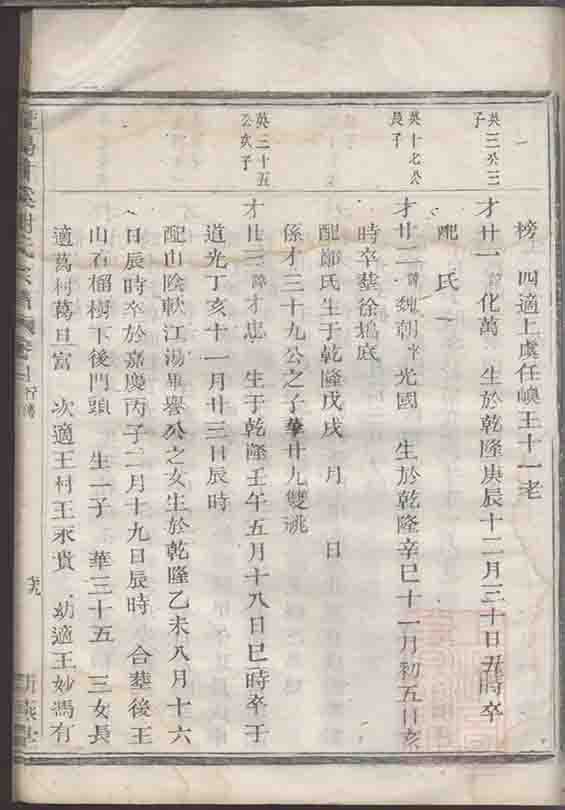 榜 四適上虞任嶴王十一老
英三公三
子
才廿一 諱化萬 生於乾隆庚辰十二月三十日丑時卒
配 氏
英十七公
長子
才廿二 諱魏朝 字光國 生於乾隆辛巳十一月初五日亥
時卒塟徐塢底
配 氏生于乾隆戊戌 月 日
係才三十九公之子華廿九雙祧
英二十五
公次子
才廿三 諱才忠 生于乾隆壬午五月十八日巳時卒于
道光丁亥十一月廿三日辰時
配山陰軟江湯畢譽公之女生於乾隆乙未八月十六
日辰時卒於嘉慶丙子二月十九日辰時 合塟後王
山石榴樹下後門頭 生一子 華三十五 三女長
適葛村葛旦富 次適王村王永貴 幼適王妙馮有
謝氏宗譜 卷